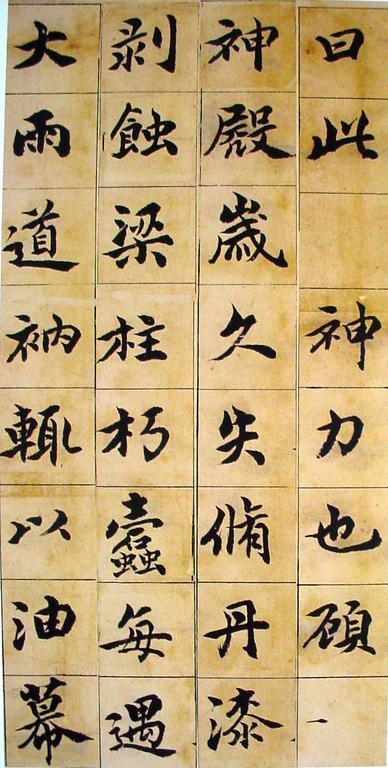 曰此神力也頋
神殿歲久失脩丹漆
剥蝕梁柱朽蠹每遇
大雨道衲輒以油幕